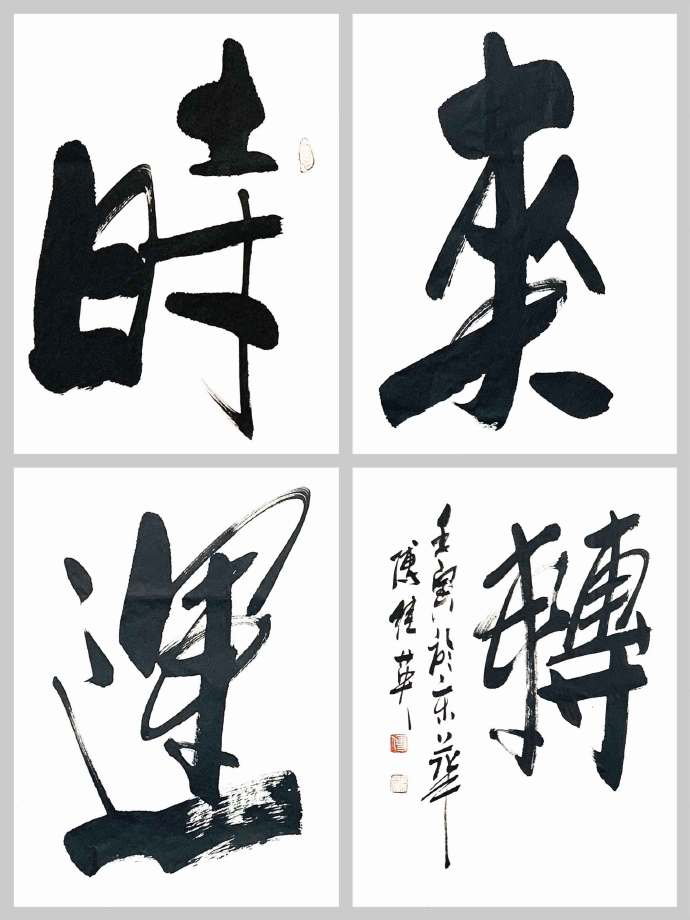 時
來
運
轉
壬寅於京華
陳佳英